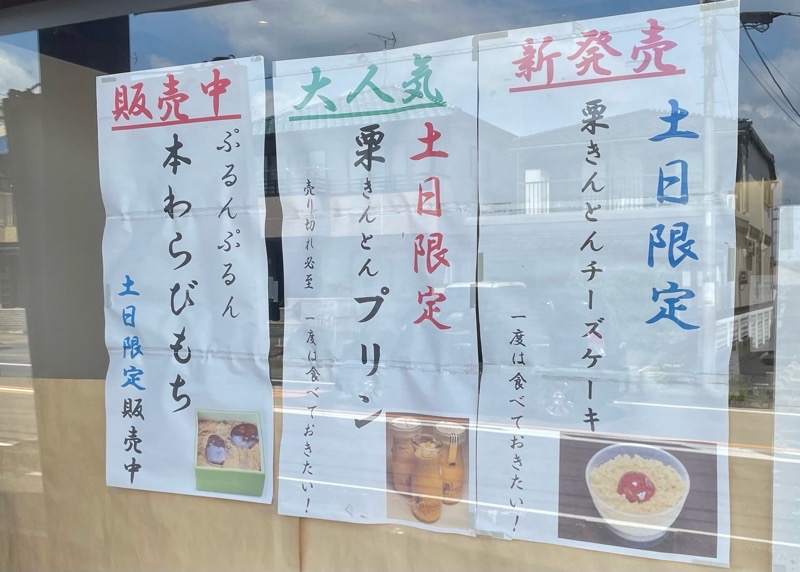 販売中
ぷるんぷるん
本わらびもち
土日限定販売中
大人気
土日限定
栗きんとんプリン
売り切れ必至 一度は食べておきたい！
新発売
土日限定
栗きんとんチーズケーキ
一度は食べておきたい！